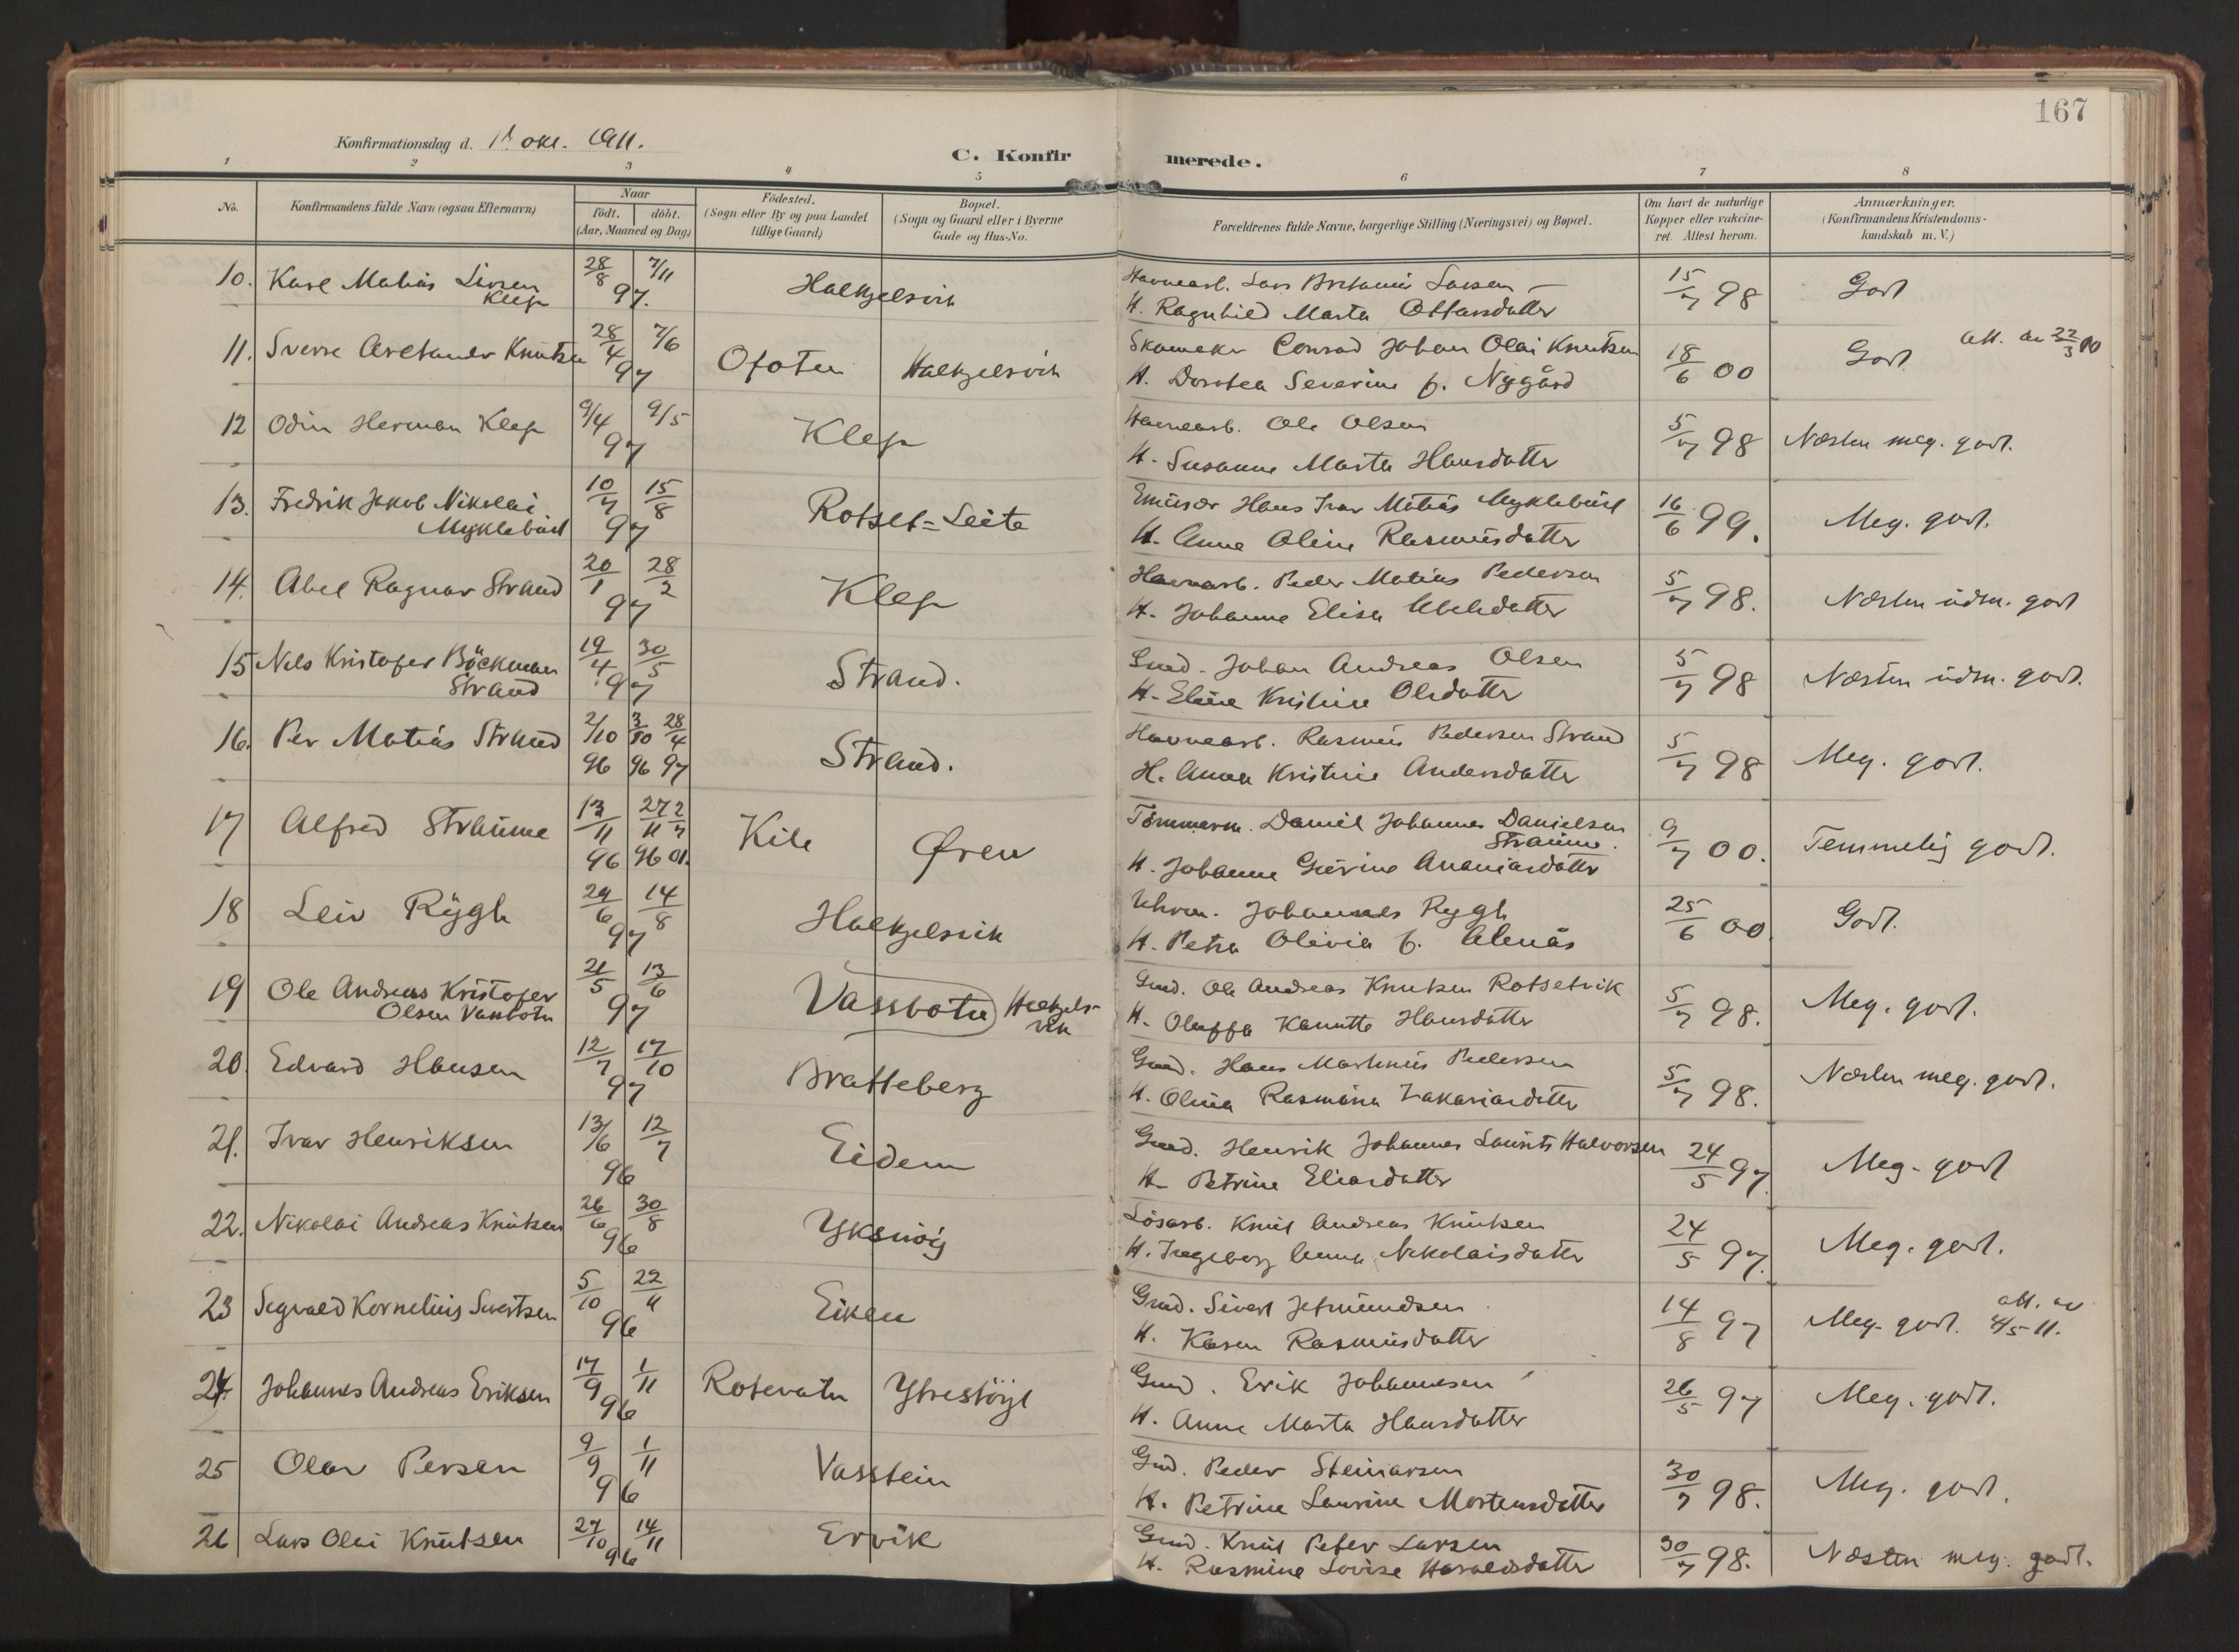 167
Konfirmationsdag d. 1ste okt. 1911.
C. Konfirmerede.
1 2 3 4 5 6 7 8
No.
Konfirmandens fulde Navn (ogsaa Efternavn)
Naar
født. døbt.
(Aar, Maaned og Dag)
Födested.
(Sogn eller By og paa Landet
tillige Gaard)
Bopæl.
(Sogn og Gaard eller i Byerne
Gade og Hus-No.
Forældrenes fulde Navne, borgerlige Stilling (Næringsvei) og Bopæl.
Om havt de naturlige
Kopper eller vakcine-
ret. Attest herom.
Anmærkninger.
(Konfirmandens Kristendoms-
kundskab m. V.)
10. Karl Matias Larsen 28/8 7/11 Halkjelsvik Havnearb. Lars Larsen 15/7 98 Godt
Klep 97. H. Ragnhild Marta Ottarsdatter
11. Sverre Knutsen 28/4 7/6 Ofoten Halkjelsvik Skomaker Conrad Johan Olai Knutsen 18/6 00 Godt att. av 22/3 10
97 H. Dorotea Severine f. Nygård
12 Odin Herman Klep 9/4 9/5 Klep Havnearb. Ole Olsen 5/7 98 Næsten meg. godt.
97 H. Susanne Marta Hansdatter
13. Fredrik Jakob Nikolai 10/7 15/8 Rotset=Leite Hans Ivar Matias Myklebust 16/6 99. Meg. godt.
Myklebust 97 H. Anne Oline Rasmusdatter
14. Abel Ragnar Strand 20/1 28/2 Klep Havnearb. Peder Matias Pedersen 5/7 98. Næsten udm. godt
97 H. Johanne Elisa
15 Nils Kristofer Böckman 19/4 30/5 Strand. Gmd. Johan Andreas Olsen 5/7 98 Næsten udm. godt.
Strand 97 H. Eline Kristine Olsdatter
16. Per Matias Strand 2/10 3/10 28/4 Strand. Havnearb. Rasmus Pedersen Strand 5/7 98 Meg. godt.
96 96 97 H. Anna Kristine Andersdatter
17 Alfred Straume 13/11 27/11 2/7 Kile Øren Tömmerm. Daniel Johannes Danielsen 9/7 00. Temmelig godt.
Straume.
96 96 01. H. Johanne Gurine Ananiasdatter
18 Leiv Rygh 29/6 14/8 Halkjelsvik Uhrm. Johannes Rygh 25/6 00. Godt.
97 H. Petra Olivia f. Alnäs
19 Ole Andreas Kristofer 21/5 13/6 Vassbotn Halkjels-
vik Gmd. Ole Andreas Knutsen Rotsetvik 5/7 98. Meg. godt.
Olsen Vassbotn 97 H. Oluffa Kanutte Hansdatter
20. Edvard Hansen 12/7 17/10 Bratteberg Gmd. Hans Martinus Pedersen 5/7 98. Næsten meg. godt.
97 H. Olina Rasmina Zakariasdatter
21. Ivar Henriksen 13/6 12/7 Eidem Gmd. Henrik Johannes Laurits Halvorsen 24/5 97. Meg. godt
96 H. Petrine Eliasdatter
22. Nikolai Andreas Knutsen 26/6 30/8 Yksnöy Lösarb. Knut Andreas Knutsen 24/5 97. Meg. godt.
96 H. Ingeborg Anna Nikolaisdatter
23 Sigvald Kornelius Sivertsen 5/10 22/11 Eiken Gmd. Sivert Jetmundsen 14/8 97 Meg. godt. att. av
4/5 11.
96 H. Karen Rasmusdatter
24. Johannes Andreas Eriksen 17/9 1/11 Rotevatn Ytrestöyl Gmd. Erik Johannesen 26/5 97 Meg. godt.
96 H. Anne Marta Hansdatter
25 Olav Persen 9/9 1/11 Vasstein Gmd. Peder Steinarsen 30/7 98. Meg. godt.
96 H. Petrine Laurine Mortensdatter
26 Lars Olai Knutsen 27/10 14/11 Ervik Gmd. Knut Peter Larsen 30/7 98. Næsten meg. godt.
96 H. Rasmine Lovise Haraldsdatter